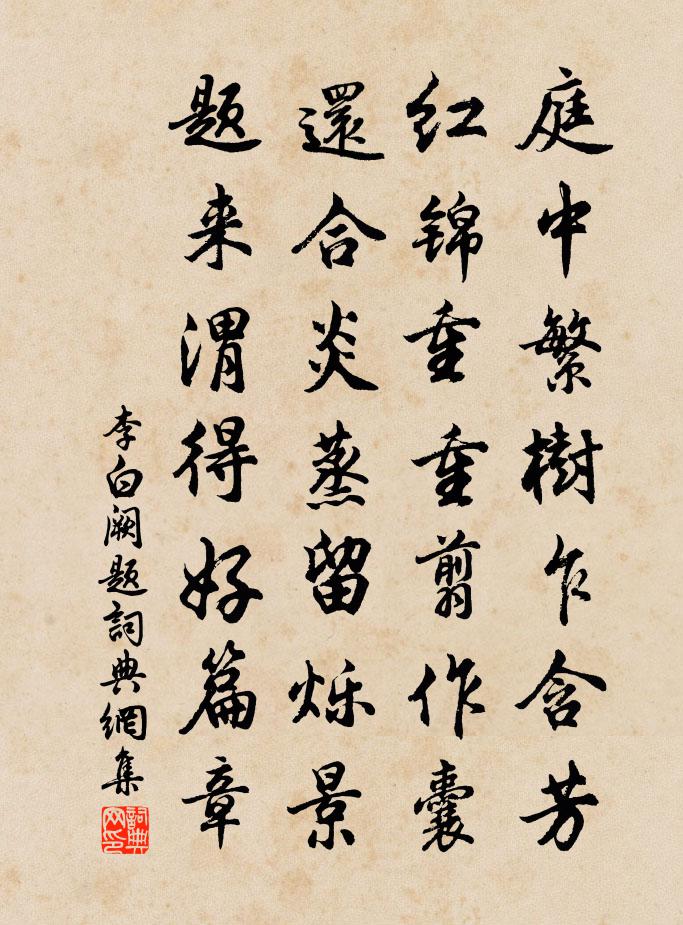 庭中繁樹乍含芳
红锦重重翦作囊
還合炎蒸留烁景
题来消得好篇章
李白阙题詞典網集
詞典网印